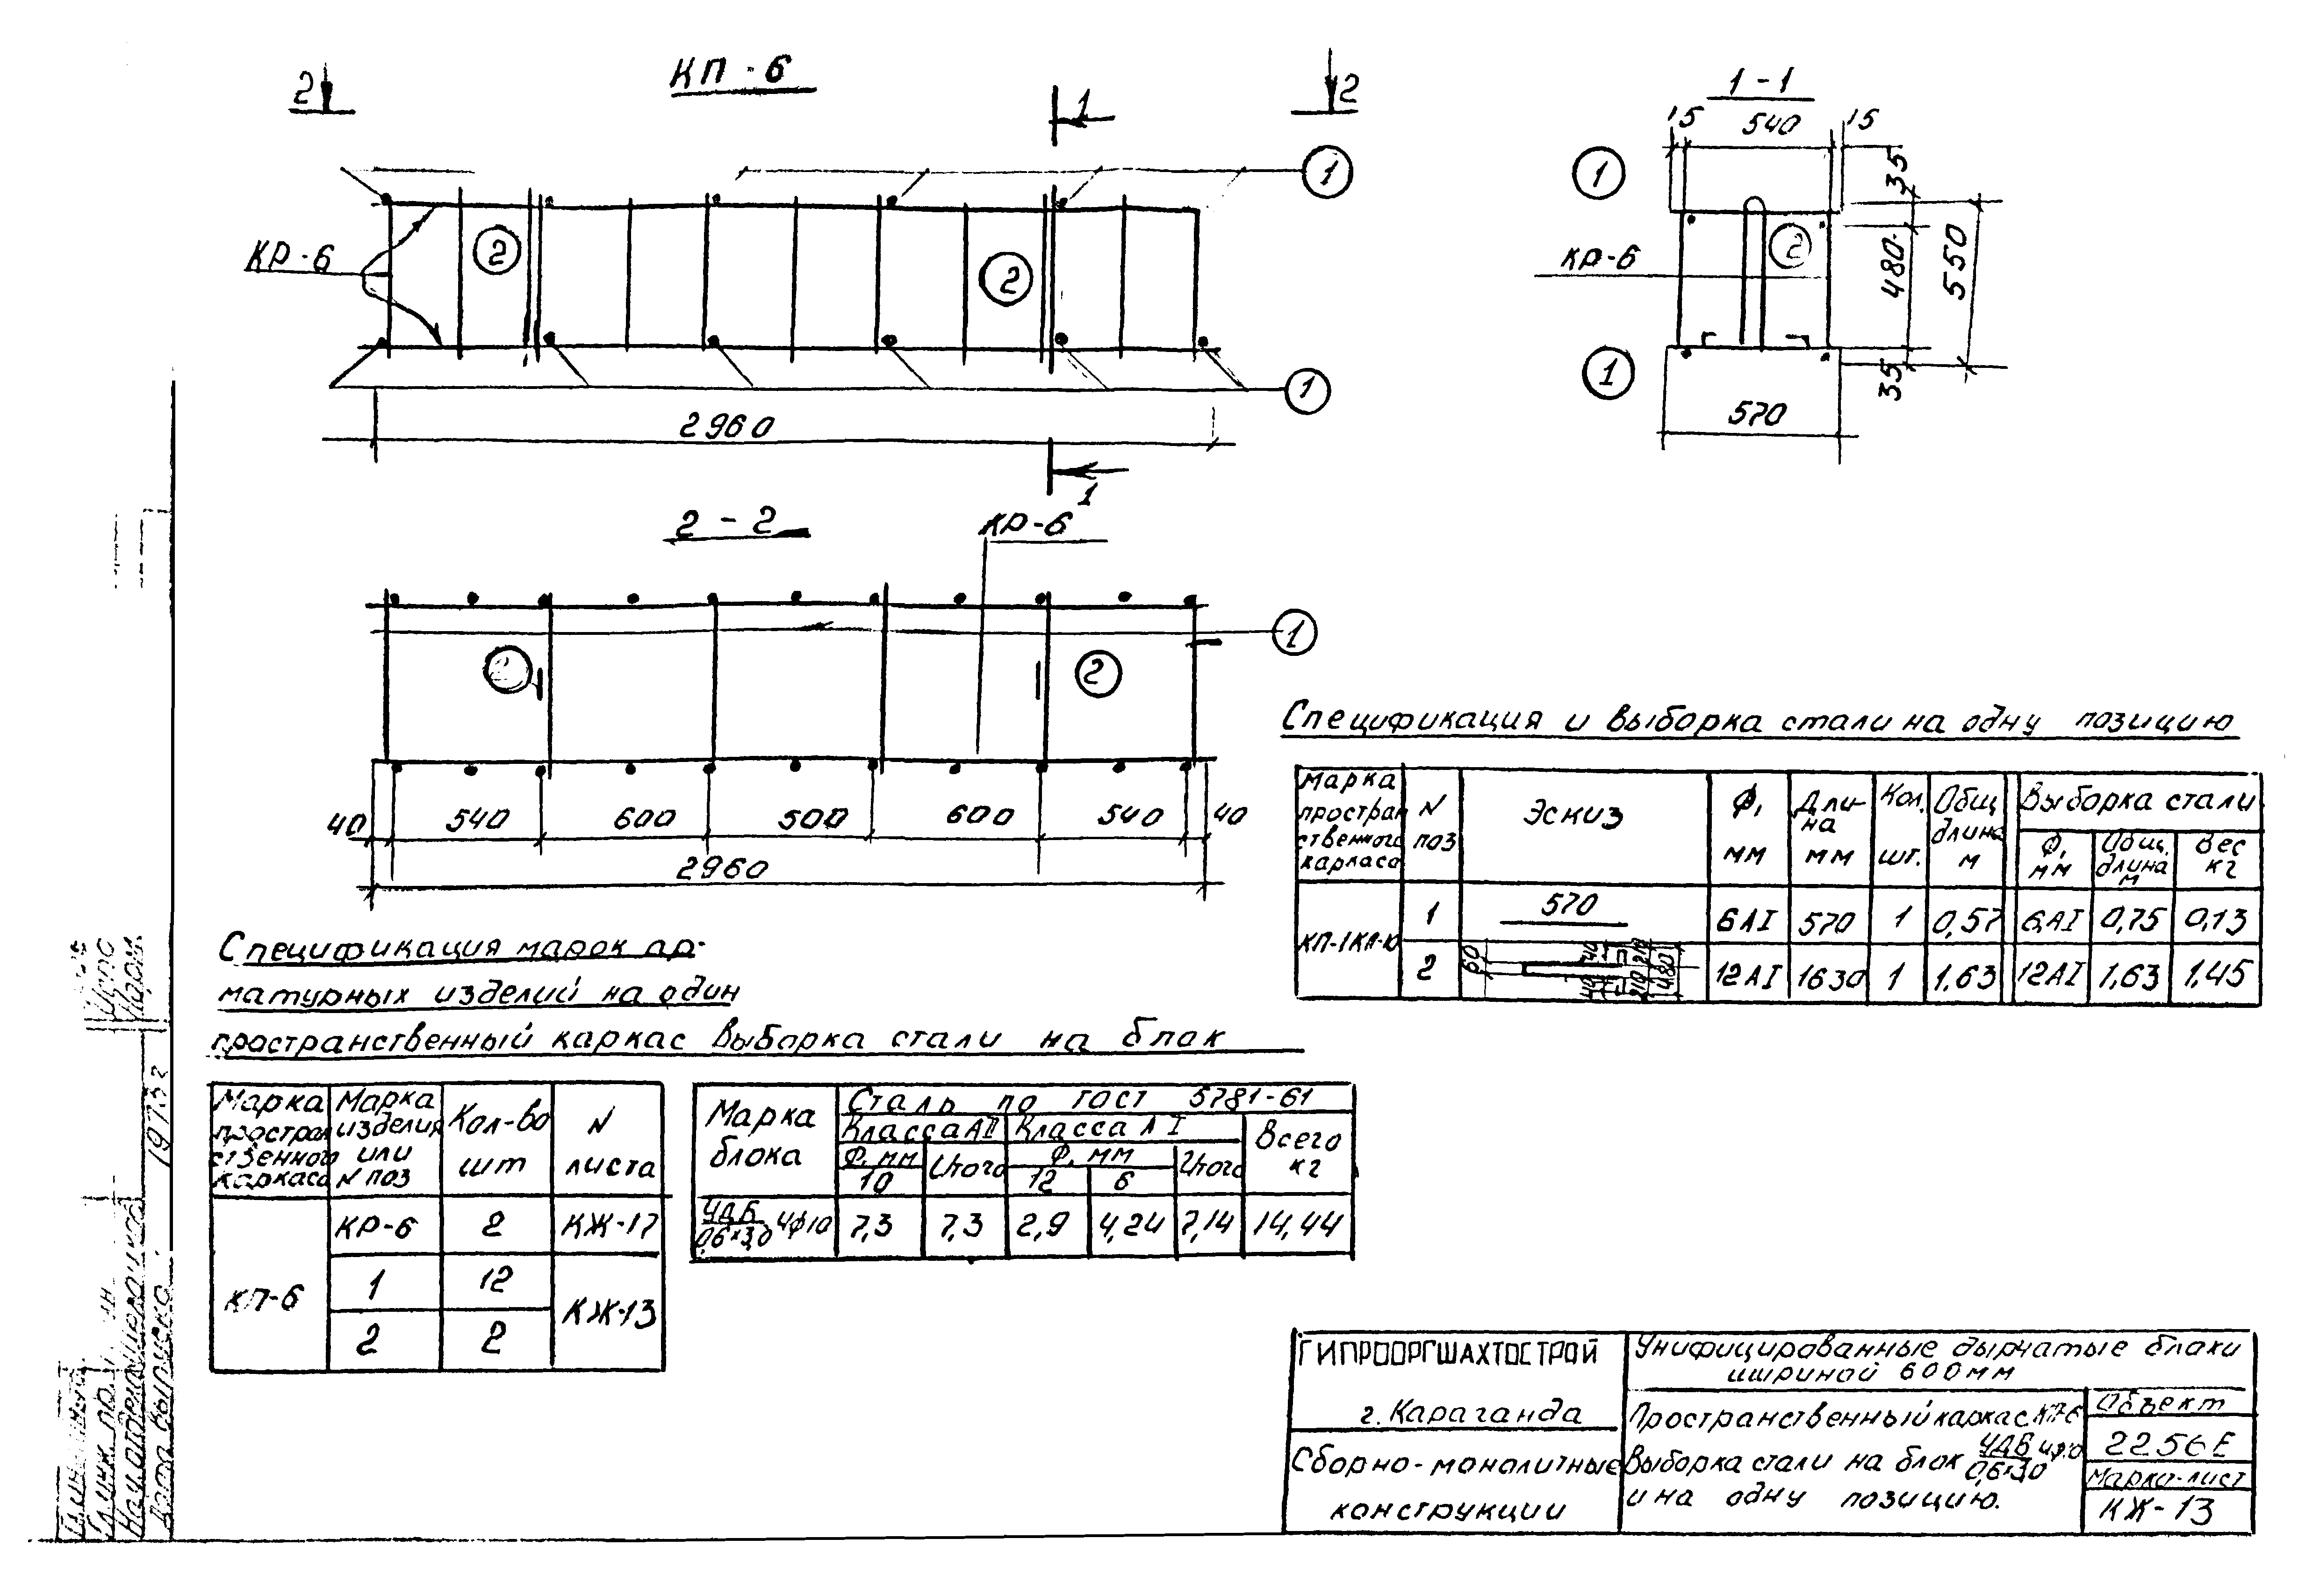 КП-6
2
2
1
1
КР-6
2
2
1
2960
1
1-1
15
540
15
1
35
2
КР-6
480
550
1
35
570
2-2
КР-6
1
2
2
40
540
600
500
600
540
40
2960
Спецификация марок ар-
матурных изделий на один
пространственный каркас Выборка стали на блок
Марка простран ственного каркаса
Марка изделия или N поз
Кол-во шт
N листа
КП-6
КР-6
2
КЖ-17
1
12
КЖ-13
2
2
Марка блока
Сталь по ГОСТ 5781-61
Класса АII
Класса АI
Всего кг
Ф, мм
Итого
Ф, мм
Итого
10
12
6
УДБ
0,6×3,0
4ф10
7,3
7,3
2,9
4,24
7,14
14,44
Спецификация и выборка стали на одну позицию
Марка простран ственного каркаса
N поз
Эскиз
Ф, мм
Дли-на мм
Кол. шт.
Общ длина м
Выборка стали
Ф, мм
Общ. длина м
Вес кг
КП-1КП-10
1
570
6АI
570
1
0,57
6АI
0,75
0,13
2
60
40
210
480
40
210
12АI
1630
1
1,63
12АI
1,63
1,45
ГИПРООРГШАХТОСТРОЙ
г. Караганда
Сборно-монолитные
конструкции
Унифицированные дырчатые блоки
шириной 600мм
Пространственный каркас КП-6
Выборка стали на блок УДБ
0,6×3,0
4ф10
и на одну позицию.
Объект
2256Е
Марка-лист
КЖ-13
Дата выпуска 1973г